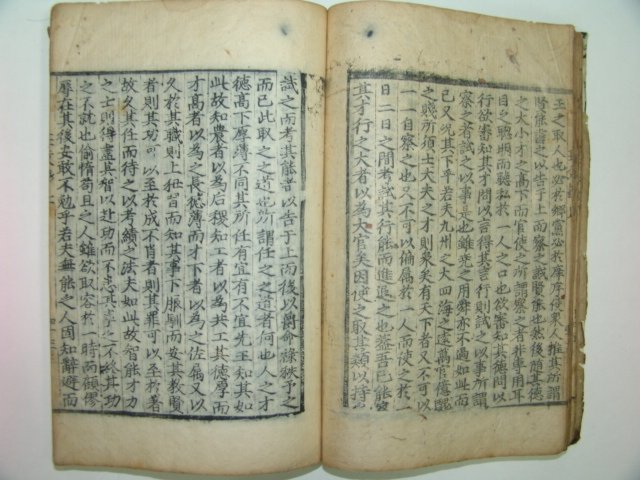 王之取人也必於鄉黨必於庠序使衆人推其所謂
賢能書之以告于上而察之誠賢能也然後隨其德
之大小才之高下而官使之所謂察之者非專用耳
目之聰明而聽私於一人之口也欲審知其德問以
行欲審知其才問以言得其言行則試之以事所謂
察之者試之以事是也雖堯之用舜亦不過如此而
已又况其下乎若夫九州之大四海之遠萬官億醜
之賤所須士大夫之才則衆矣有天下者又不可以
一一自察之也又不可以偏屬於一人而使之於一
日二日之間考試其行能而進退之也盖吾已能察
其才行之大者以為大官矣因使之取其類以持
試之而考其能者以告于上而後以爵命祿秩予之
而已此取之之道也所謂任之之道者何也人之才
德高下厚薄不同其所任有宜有不宜先王知其如
此故知農者以為后稷知工者以為共工其德厚而
才高者以為之長德薄而才下者以為之佐屬又以
久於其職則上狃習而知其事下服馴而安其教賢
者則其功可以至於成不肖者則其罪可以至於著
故久其任而待之以考績之法夫如此故智能才力
之士則得盡其智以赴功而不患其事之不終其功
之不就也偷惰苟且之人雖欲取容於一時而顧僇
辱在其後安敢不勉乎若夫無能之人固知辭避而